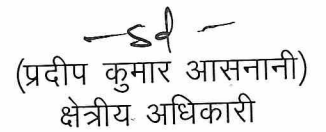 —sd—
(प्रदीप कुमार आसनानी)
क्षेत्रीय अधिकारी